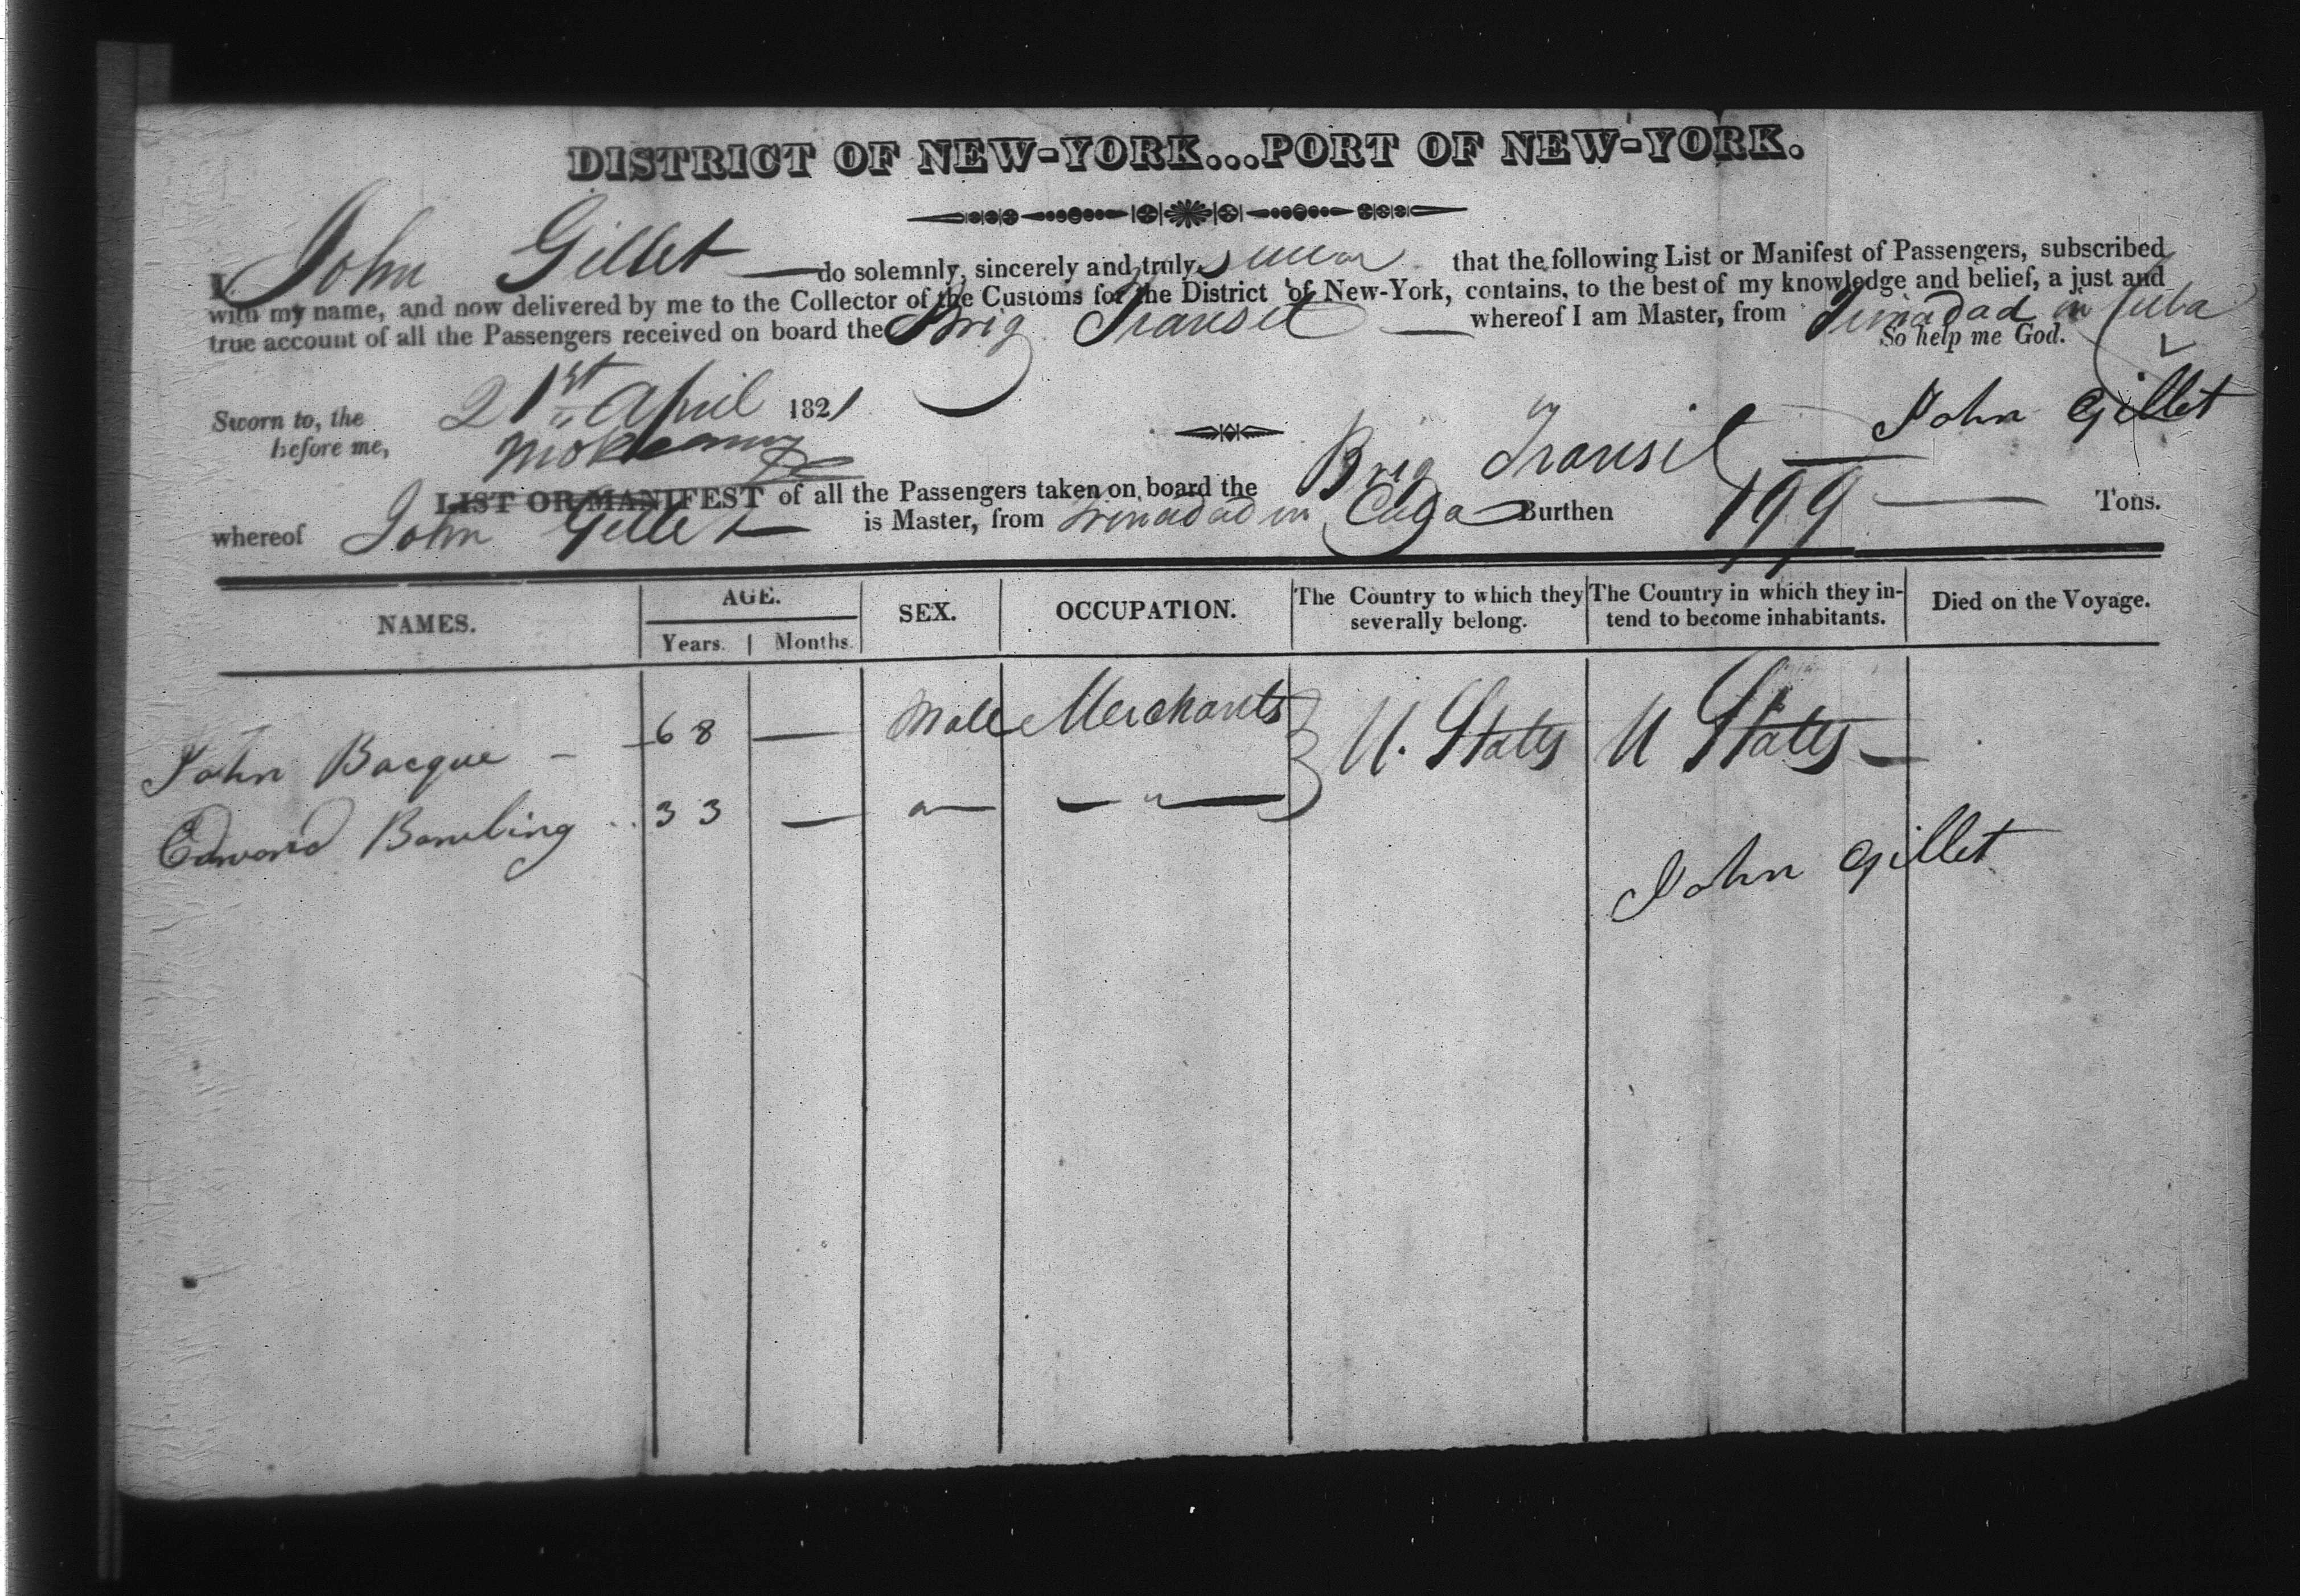 DISTRICT OF NEW-YORK...PORT OF NEW-YORK.
I, John Gillet do solemnly, sincerely and truly swear that the following List or Manifest of Passengers, subscribed
with my name, and now delivered by me to the Collector of the Customs for the District of New-York, contains, to the best of my knowledge and belief, a just and
true account of all the Passengers received on board the Brig Transit whereof I am Master, from Trinadad in Cuba
So help me God.
Sworn to, the 21st April 1821
before me,
John Gillet
LIST OR MANIFEST of all the Passengers taken on board the Brig Transit
whereof John Gillet is Master, from Trinadad in Cuba Burthen 199 Tons.
NAMES. AGE. SEX. OCCUPATION. The Country to which they severally belong. The Country in which they intend to become inhabitants. Died on the Voyage.
Years. Months.
John Bacque - 68 — Male Merchants U. States U States —
Edward Bowling 33 — " — " —
John Gillet